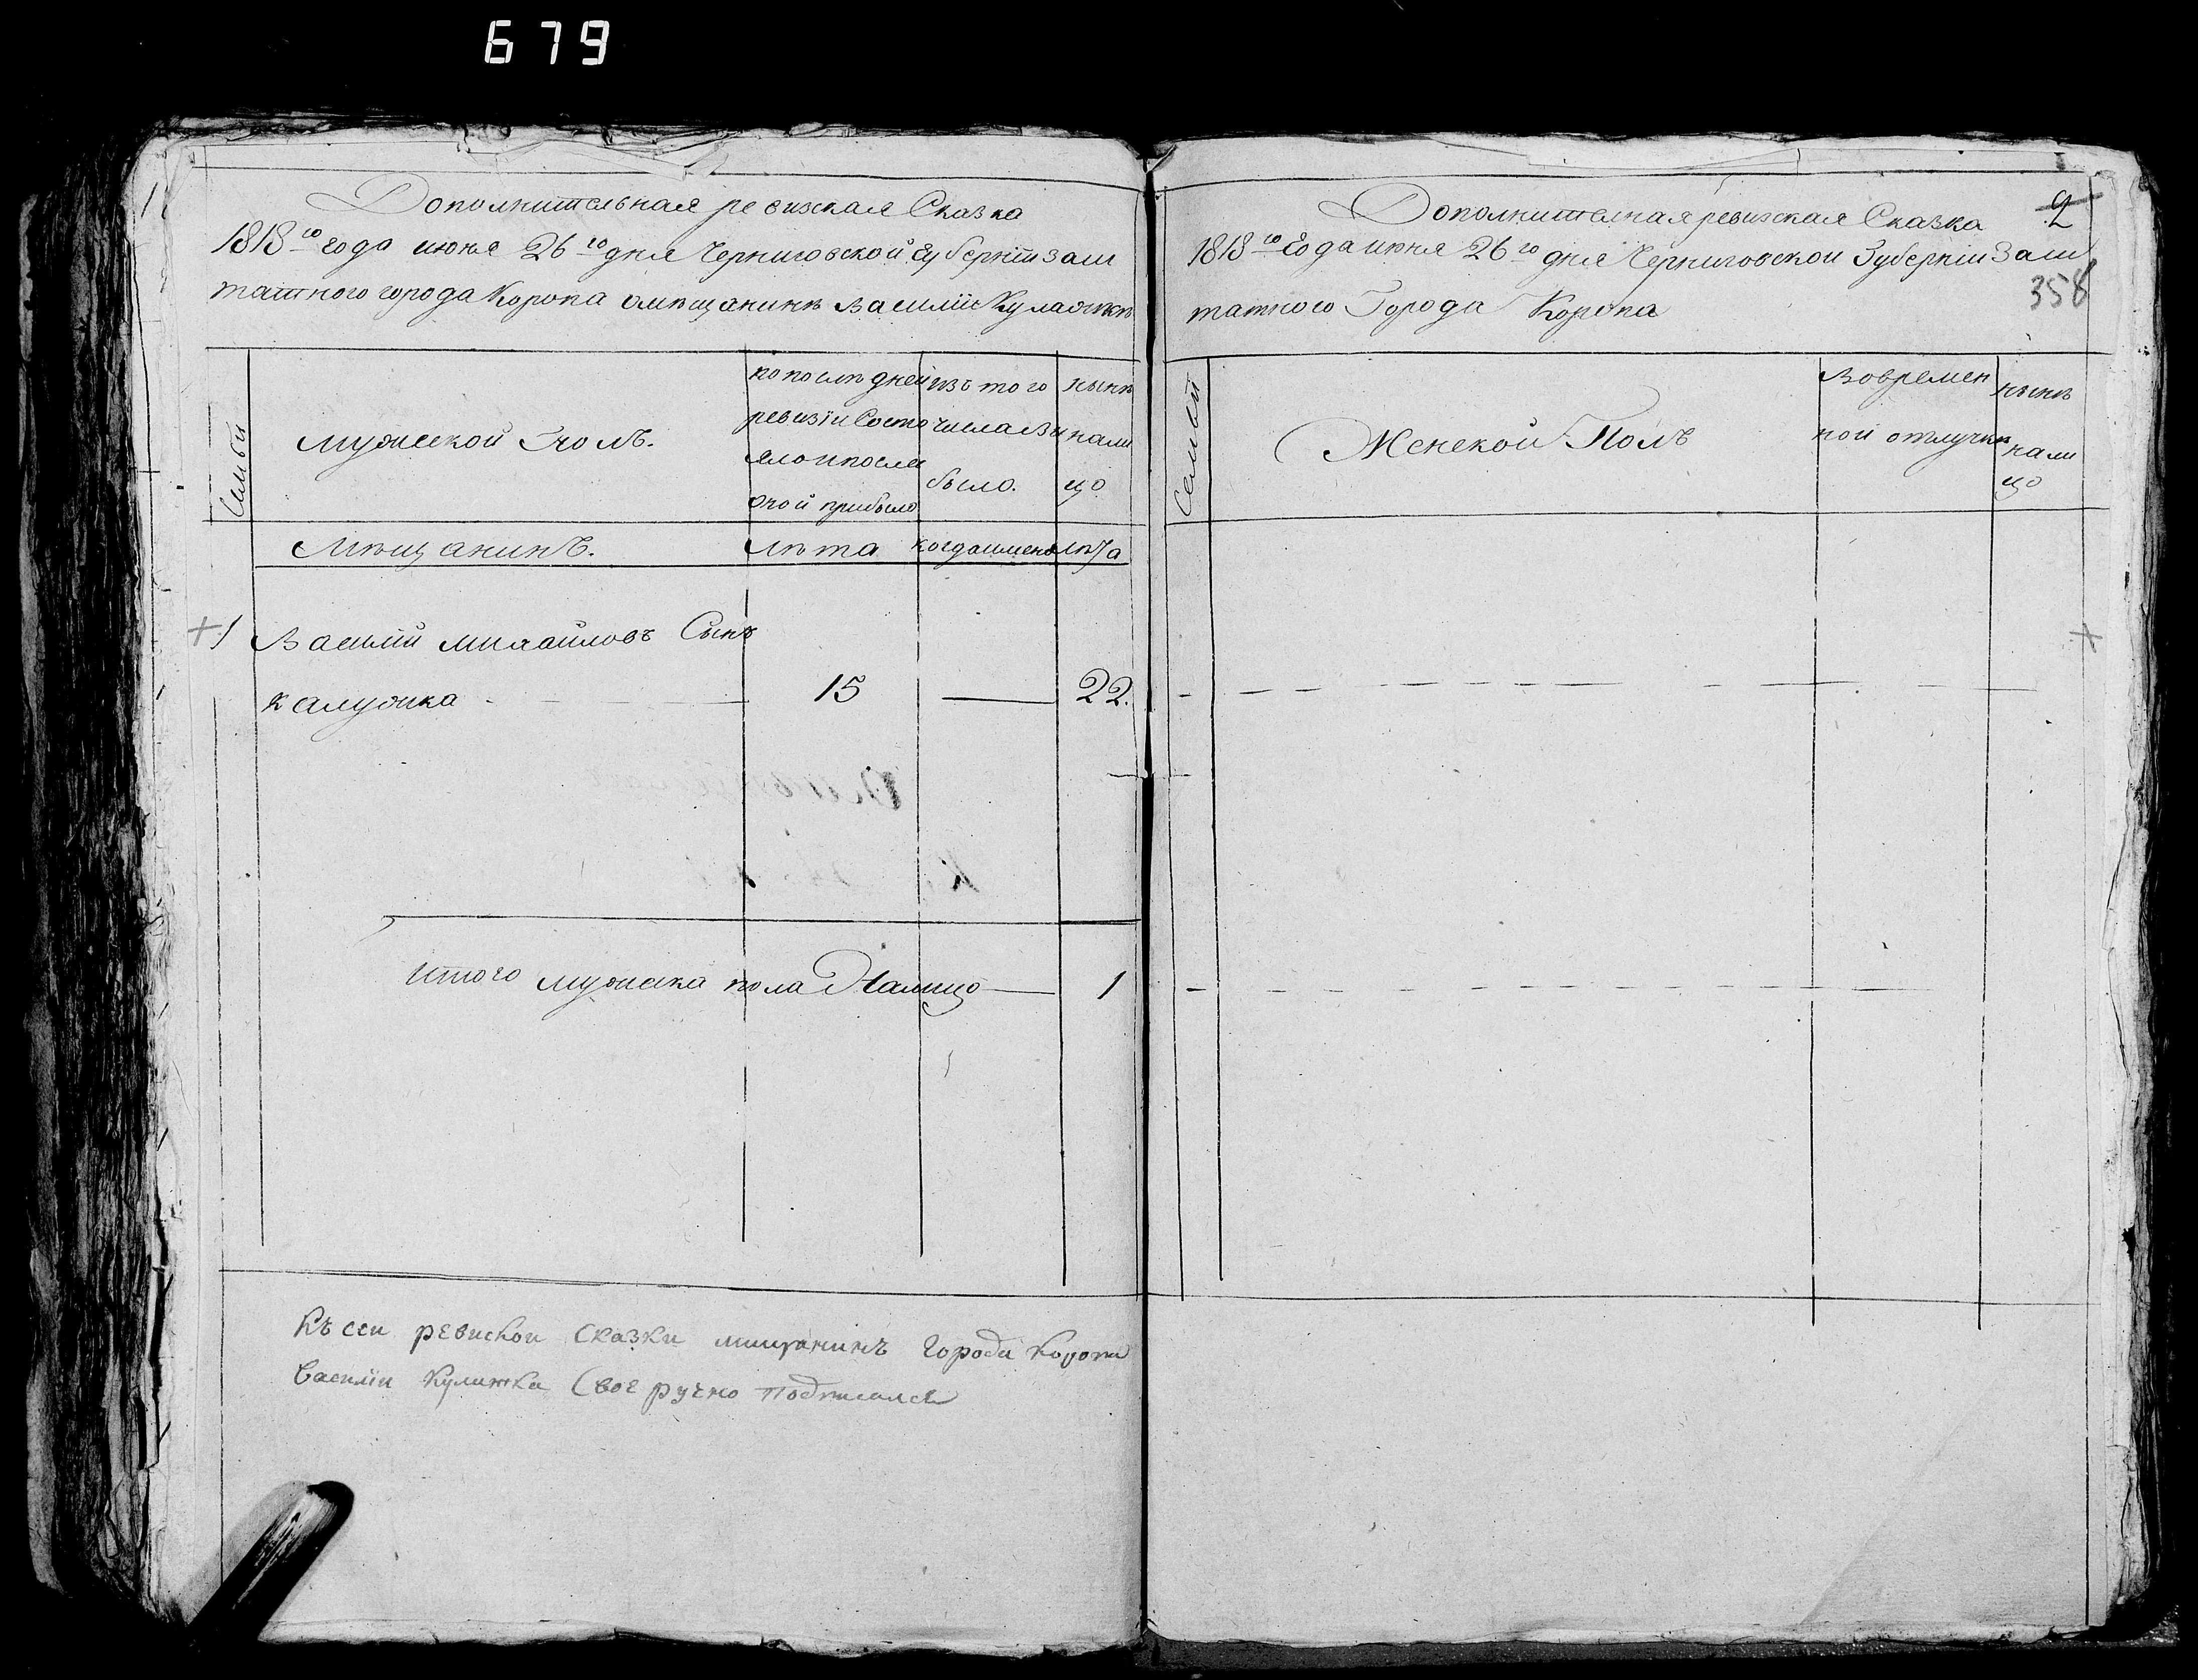 679
Дополнительная ревизская Сказка
1818го года июня 26го дня Черниговской Губерніи заш
татного города Коропа омѣщанинѣ Василіе Кулажкѣ
Семьи
мужеской полъ.
по послѣдней
ревизіи Состо
яло и после
оной прибыло
изъ того
числа вы
было.
нынѣ
нали
цо
Мѣщанинъ.
лѣта
когда имено
лѣта
1 Василій михайловъ Сынъ
калужка 15 22.
итого мужеска пола Налицо 1
Къ сеи ревискои сказки мищанинъ города Коропа
Василіи Кулажка Своеручно подписался
2
Дополнителная ревизская Сказка
1818го Года июня 26го дня Черниговскои Губерніи Заш
358
татного Города Коропа
Семьи
Женской Полъ
Вовремен
ной отлучки
нынѣ
нали
цо